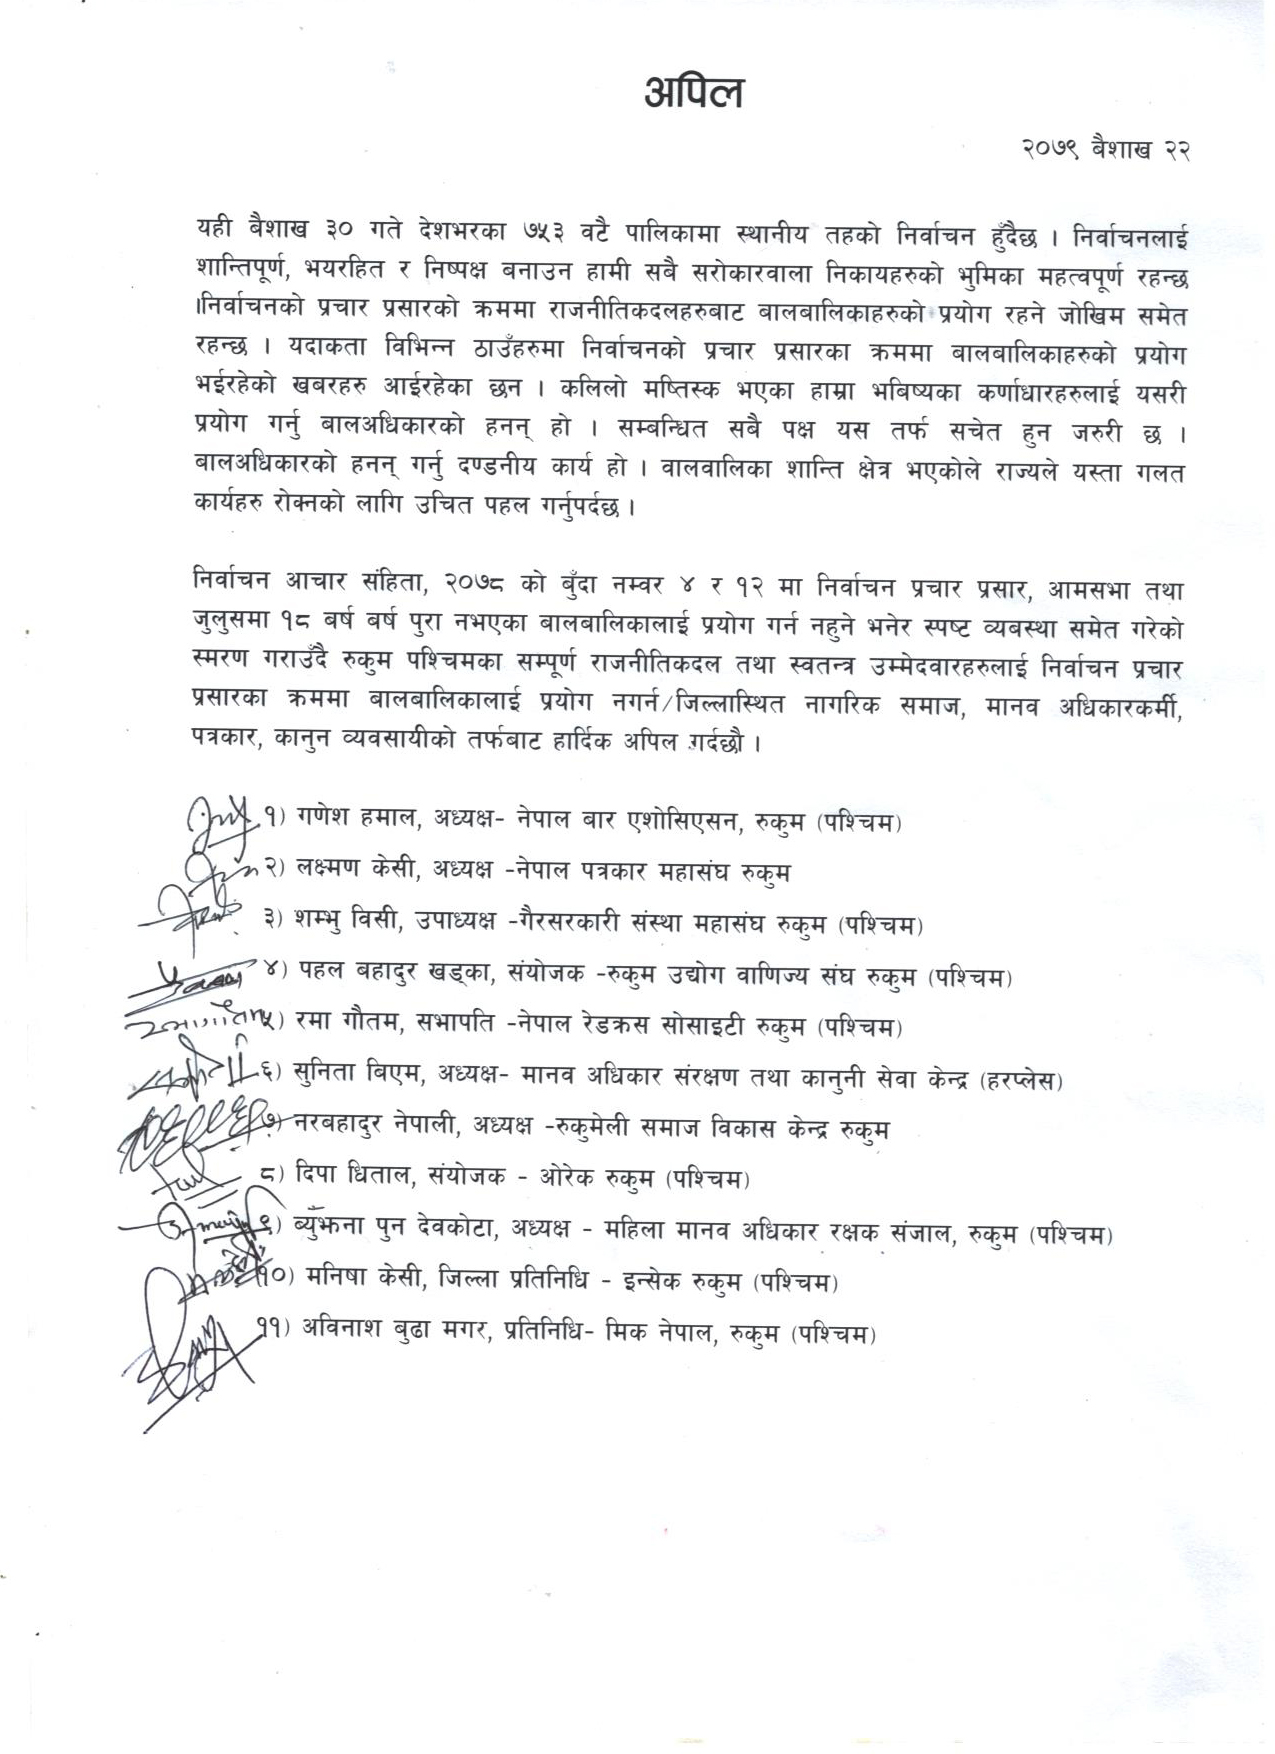 अपिल
२०७९ बैशाख २२
यही बैशाख ३० गते देशभरका ७५३ वटै पालिकामा स्थानीय तहको निर्वाचन हुँदैछ । निर्वाचनलाई
शान्तिपूर्ण, भयरहित र निष्पक्ष बनाउन हामी सबै सरोकारवाला निकायहरुको भुमिका महत्वपूर्ण रहन्छ
।निर्वाचनको प्रचार प्रसारको क्रममा राजनीतिकदलहरुबाट बालबालिकाहरुको प्रयोग रहने जोखिम समेत
रहन्छ । यदाकता विभिन्न ठाउँहरुमा निर्वाचनको प्रचार प्रसारका क्रममा बालबालिकाहरुको प्रयोग
भईरहेको खबरहरु आईरहेका छन । कलिलो मष्तिस्क भएका हाम्रा भबिष्यका कर्णाधारहरुलाई यसरी
प्रयोग गर्नु बालअधिकारको हनन् हो । सम्बन्धित सबै पक्ष यस तर्फ सचेत हुन जरुरी छ ।
बालअधिकारको हनन् गर्नु दण्डनीय कार्य हो । वालवालिका शान्ति क्षेत्र भएकोले राज्यले यस्ता गलत
कार्यहरु रोक्नको लागि उचित पहल गर्नुपर्दछ ।
निर्वाचन आचार संहिता, २०७८ को बुँदा नम्वर ४ र १२ मा निर्वाचन प्रचार प्रसार, आमसभा तथा
जुलुसमा १८ बर्ष बर्ष पुरा नभएका बालबालिकालाई प्रयोग गर्न नहुने भनेर स्पष्ट व्यबस्था समेत गरेको
स्मरण गराउँदै रुकुम पश्चिमका सम्पूर्ण राजनीतिकदल तथा स्वतन्त्र उम्मेदवारहरुलाई निर्वाचन प्रचार
प्रसारका क्रममा बालबालिकालाई प्रयोग नगर्न/जिल्लास्थित नागरिक समाज, मानव अधिकारकर्मी,
पत्रकार, कानुन व्यवसायीको तर्फबाट हार्दिक अपिल गर्दछौ ।
१) गणेश हमाल, अध्यक्ष- नेपाल बार एशोसिएसन, रुकुम (पश्चिम)
२) लक्ष्मण केसी, अध्यक्ष -नेपाल पत्रकार महासंघ रुकुम
३) शम्भु विसी, उपाध्यक्ष -गैरसरकारी संस्था महासंघ रुकुम (पश्चिम)
४) पहल बहादुर खड्का, संयोजक -रुकुम उद्योग वाणिज्य संघ रुकुम (पश्चिम)
५) रमा गौतम, सभापति -नेपाल रेडक्रस सोसाइटी रुकुम (पश्चिम)
६) सुनिता बिएम, अध्यक्ष- मानव अधिकार संरक्षण तथा कानुनी सेवा केन्द्र (हरप्लेस)
७) नरबहादुर नेपाली, अध्यक्ष -रुकुमेली समाज विकास केन्द्र रुकुम
८) दिपा धिताल, संयोजक - ओरेक रुकुम (पश्चिम)
९) ब्युँझना पुन देवकोटा, अध्यक्ष - महिला मानव अधिकार रक्षक संजाल, रुकुम (पश्चिम)
१०) मनिषा केसी, जिल्ला प्रतिनिधि - इन्सेक रुकुम (पश्चिम)
११) अविनाश बुढा मगर, प्रतिनिधि- मिक नेपाल, रुकुम (पश्चिम)